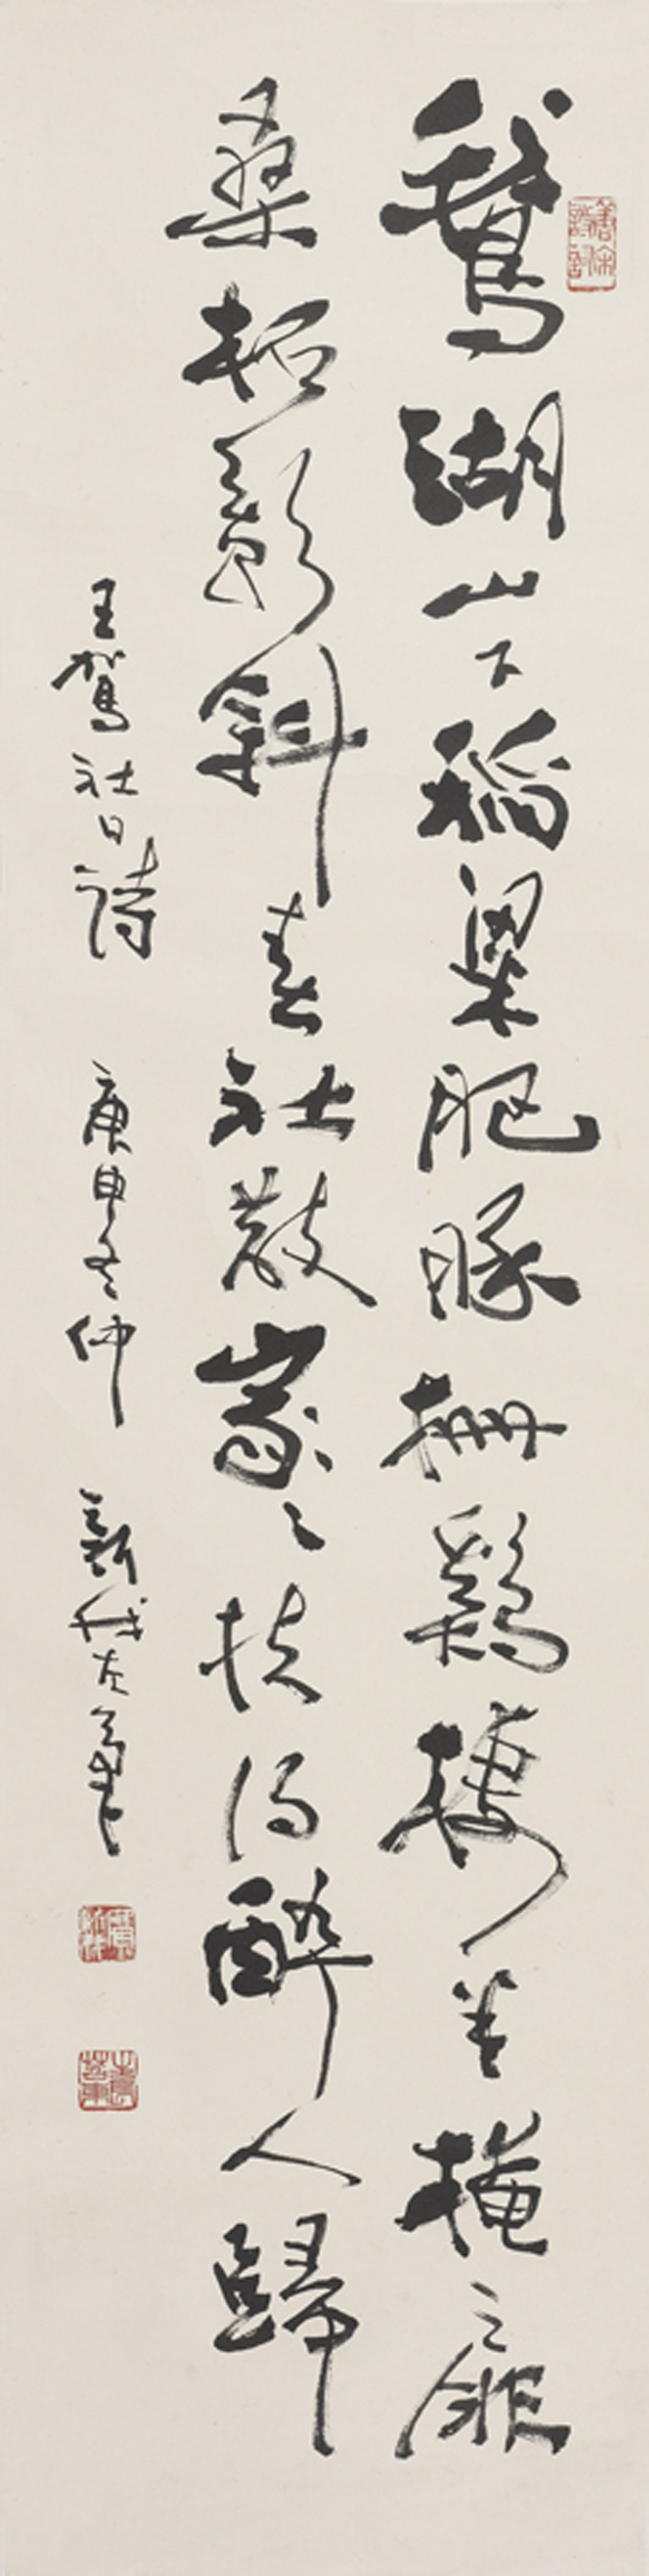 鵞湖山下稻粱肥豚柵鷄棲半掩扉
桑柘影斜春社散家々扶得醉人歸
王駕社日詩 庚申冬仲 新我左筆